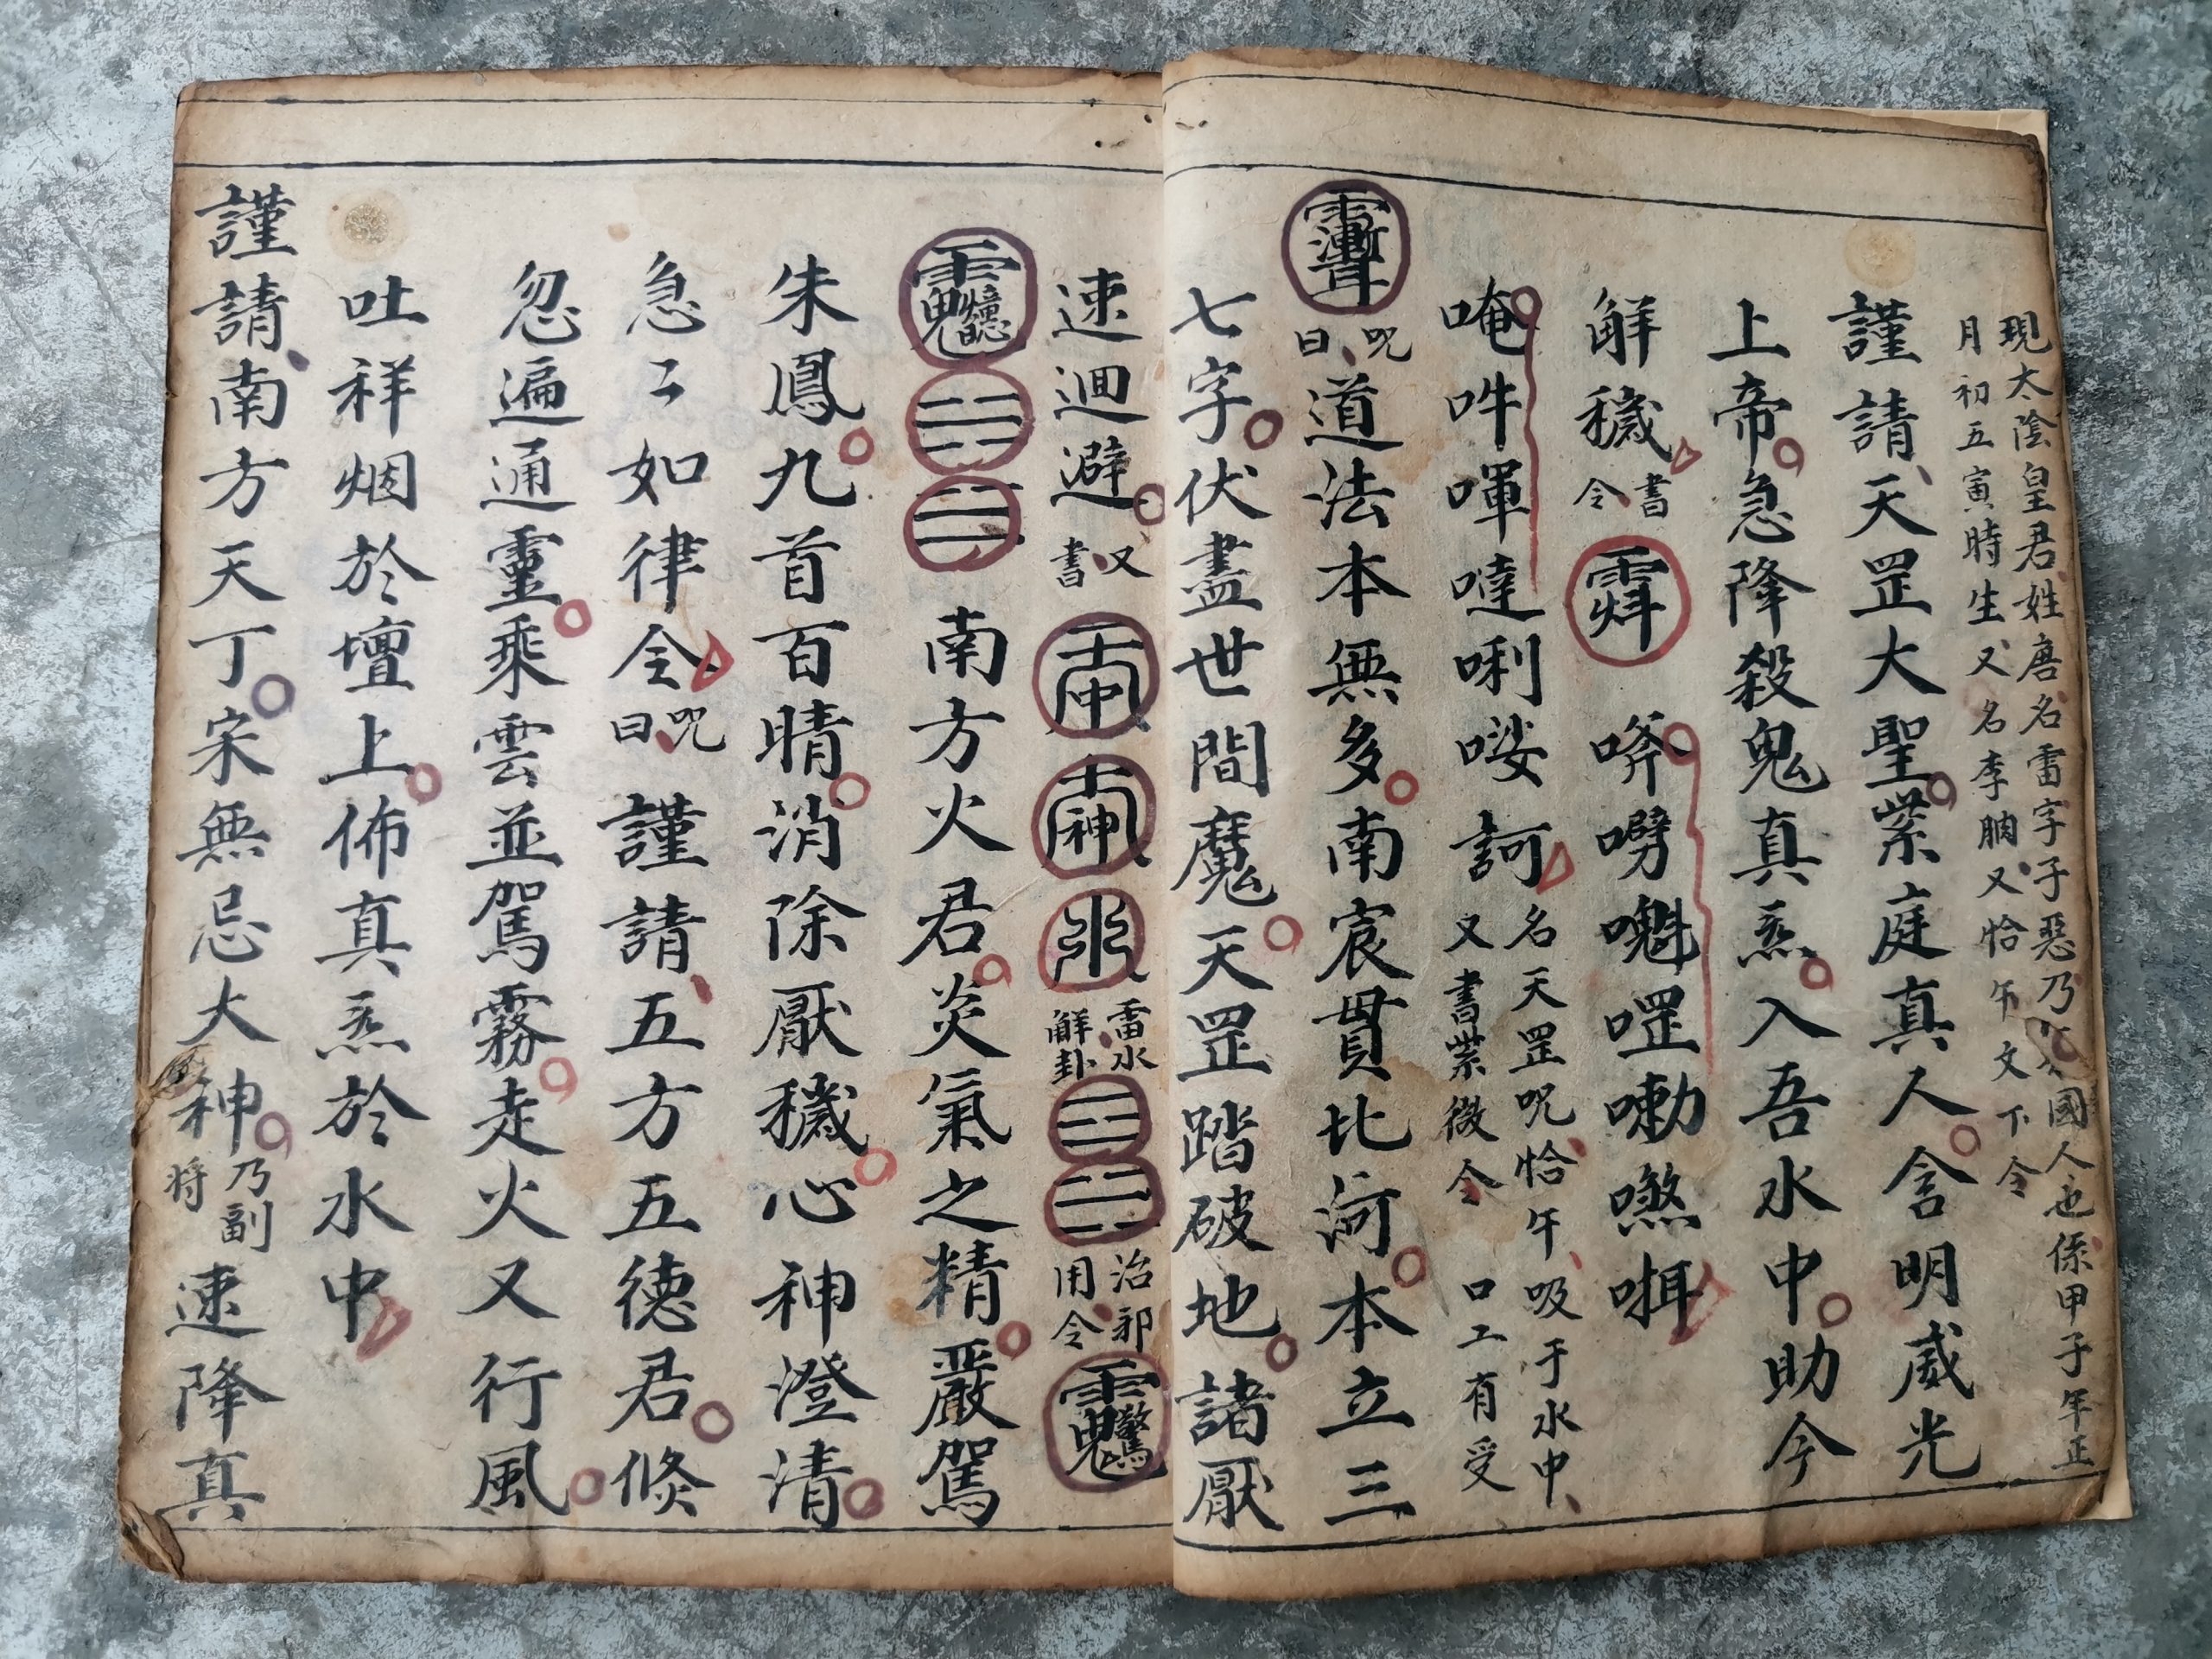 現太陰皇君姓唐名雷字子惡乃國人也係甲子年正
月初五寅時生又名李腩又恰午文下令
謹請天罡大聖紫庭真人含明威光
上帝急降殺鬼真炁入吾水中助今
解穢書令
嘮魁罡嘞噞
唵吽喗噠唎娑訶名天罡呪恰午吸于水中
又書紫微令口工有受
呪曰道法本無多南宸貫比河本立三
七字伏盡世間魔天罡踏破地諸厭
速迴避又書雷水解卦治邪用令
南方火君炎氣之精嚴駕
朱鳳九首百晴消除厭穢心神澄清
急々如律令呪曰謹請五方五德君倏
忽遍通靈乘雲並駕霧走火又行風
吐祥烟於壇上佈真炁於水中
謹請南方天丁宋無忌大神乃副将速降真